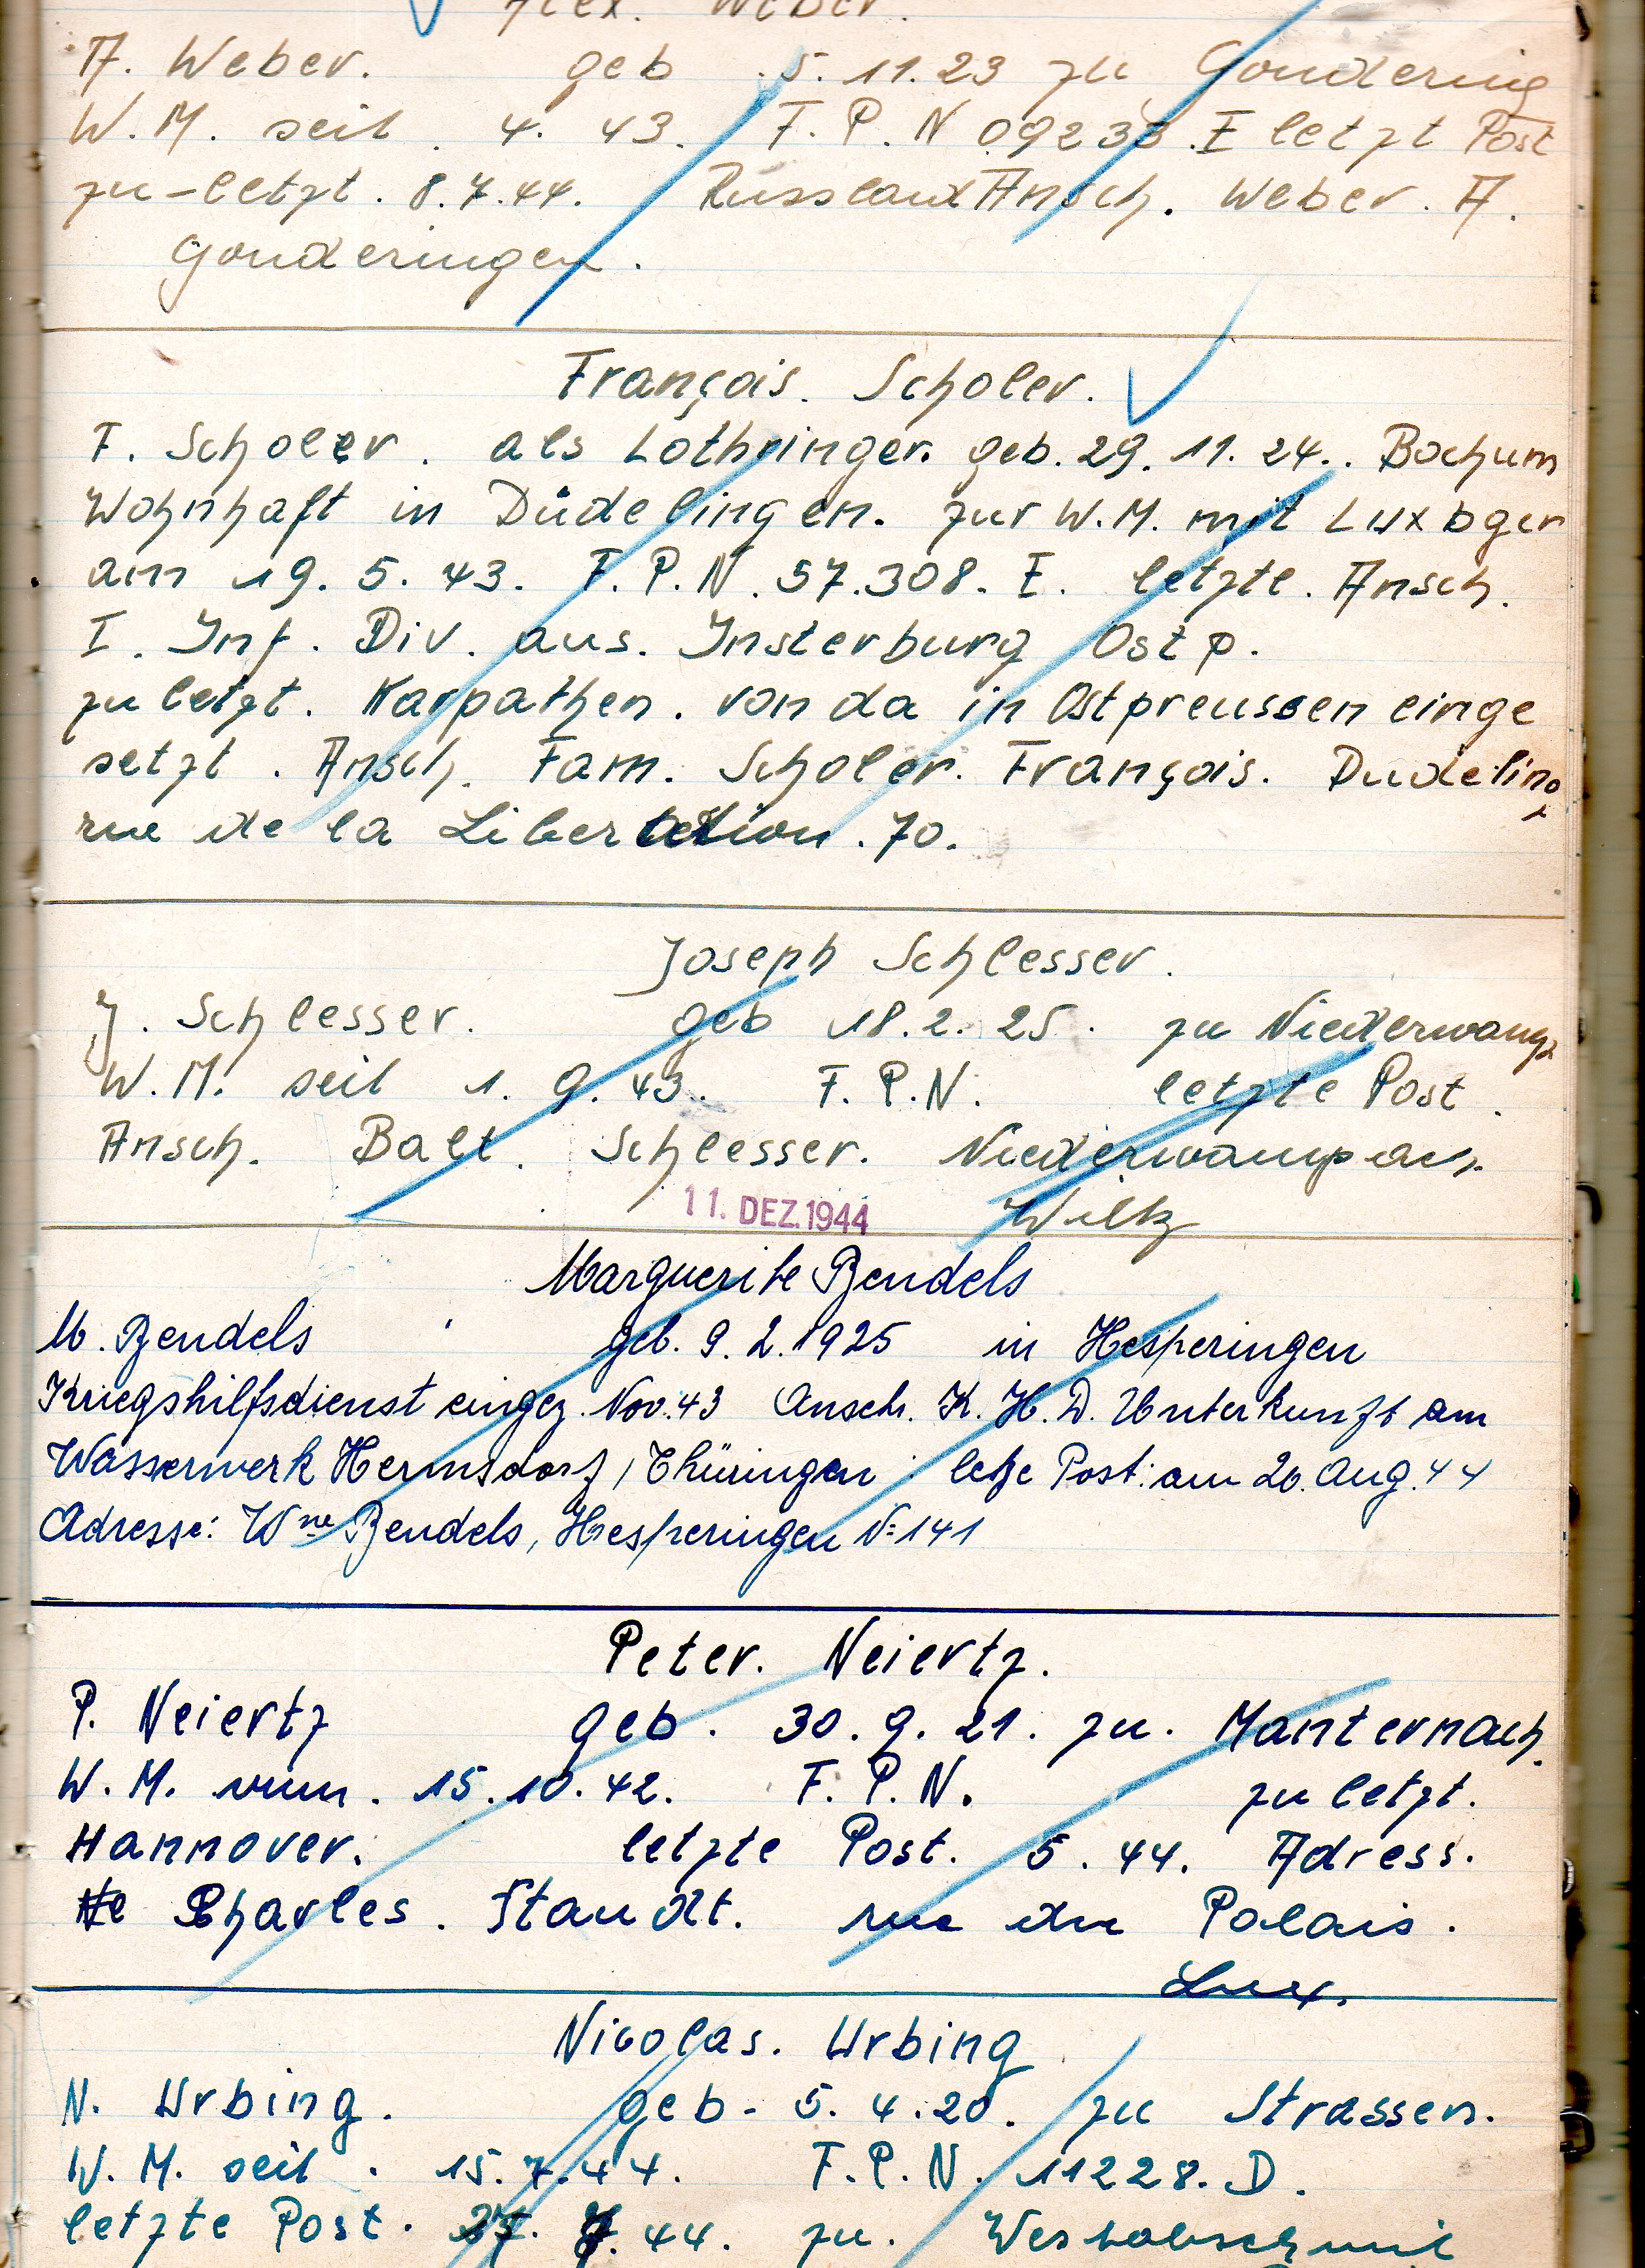 Alex. Weber.
A. Weber. geb 5.11.23 zu Gondering
W.M. seit. 4. 43. F.P.N 09233.E letzt Post
zu-letzt. 8.7.44. Russland Ansch. Weber. A.
Gonderingen.
François. Scholer.
F. Scholer. als Lothringer. geb. 29. 11. 24.. Bochum
Wohnhaft in Düdelingen. zur W.M. mit Luxbger
am 19. 5. 43. F.P.N. 57.308.E. letzte. Ansch.
I. Inf. Div. aus. Insterburg Ostp.
zuletzt. Karpathen. von da in Ostpreussen einge
setzt. Ansch. Fam. Scholer. François. Dudeling
rue de la Liberation. 70.
Joseph Schlesser.
J. Schlesser. geb 18.2. 25. zu Niederwamp
W.M. seit 1. 9. 43. F.P.N. letzte Post.
Ansch. Balt. Schlesser. Niederwampach.
Wiltz
11. DEZ. 1944
Marguerite Bendels
M. Bendels geb. 9. 2. 1925 in Hesperingen
Kriegshilfsdienst eingez. Nov. 43 Ansch. K.H.D. Unterkunft am
Wasserwerk Hermsdorf, Thüringen letze Post: am 26. Aug. 44
Adresse: Wne Bendels, Hesperingen No 141
Peter. Neiertz.
P. Neiertz geb. 30. 9. 21. zu. Manternach.
W.M. vum. 15. 10. 42. F.P.N. zuletzt.
Hannover. letzte Post. 5. 44. Adress.
Charles. Staudt. rue du Palais.
Lux.
Nicolas. Urbing
N. Urbing. geb. 5. 4. 20. zu Strassen.
W.M. seit. 15. 7. 44. F.P.N. 11228. D.
letzte Post. 7. 44. zu.